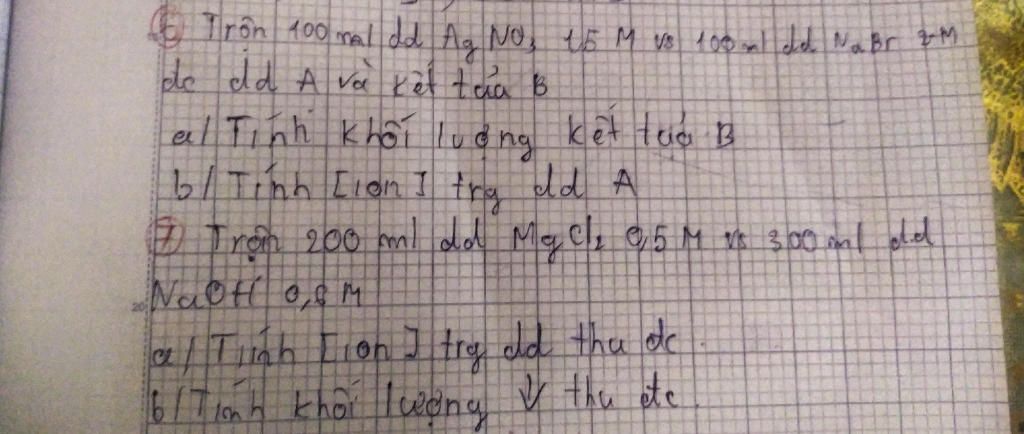 6 Trộn 100 ml dd AgNO3 1,5 M vs 100 ml dd NaBr 2M
dc dd A và kết tủa B
a/ Tính khối lượng kết tủa B
b/ Tính [ion] trg dd A
7 Trộn 200 ml dd MgCl2 0,5 M vs 300 ml dd
NaOH M
a/ Tính [ion] trg dd thu dc.
b/ Tính khối lượng ↓ thu đc.